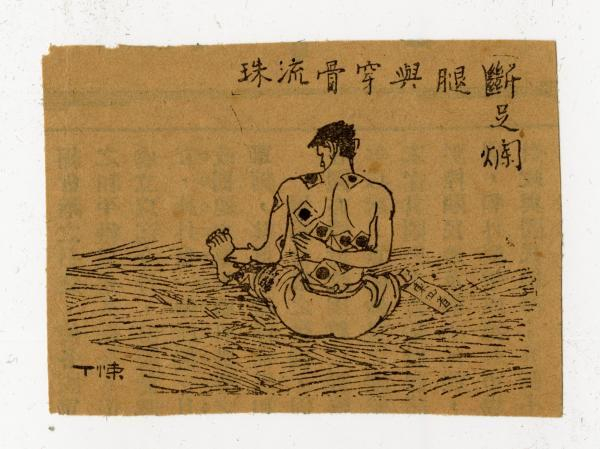 斷足爛
腿與穿骨流珠
丁悚